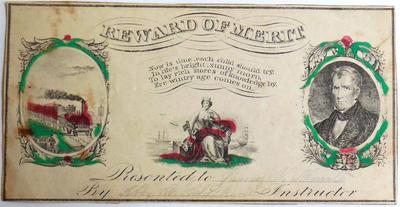 REWARD OF MERIT
Now is time, each child should try,
In life's bright, sunny morn,
To lay rich stores of knowledge by,
Ere wintry age comes on.
Presented to
By Instructor